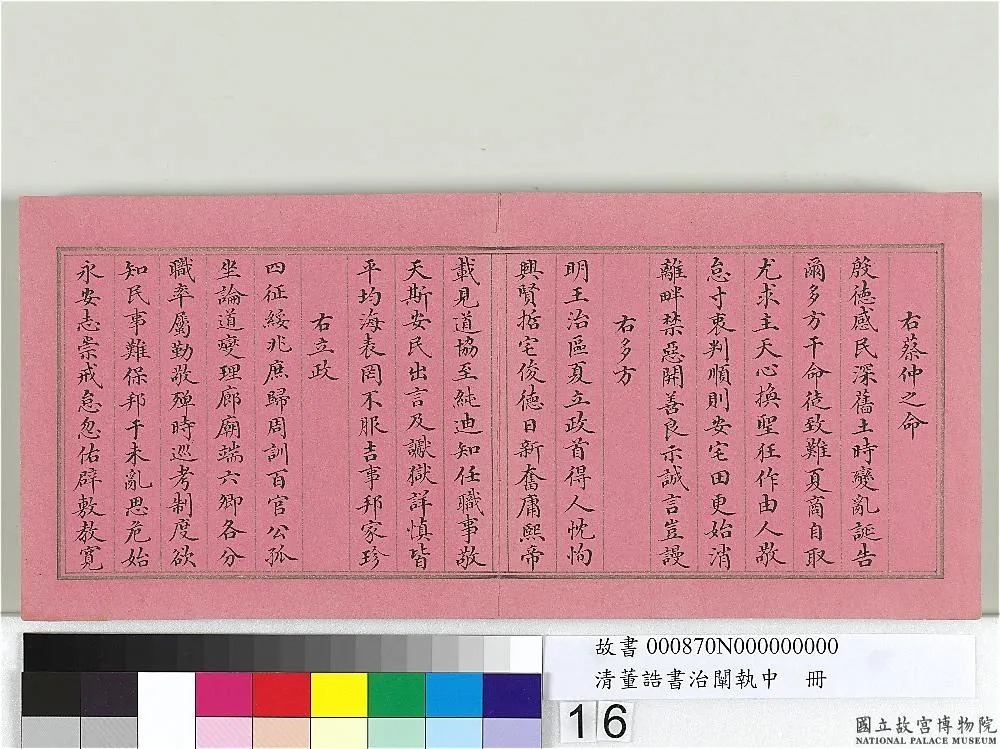 右蔡仲之命
殷德感民深舊土時變亂誕告
爾多方干命徒致難夏商自取
尤求主天心換聖狂作由人敬
怠寸衷判順則安宅田更始消
離畔禁惡開善良示誠言豈謾
右多方
明王治區夏立政首得人忱恂
興賢括宅俊德日新奮庸熙帝
載見道協至純迪知任職事敬
天斯安民出言及讞獄詳慎皆
平均海表罔不服吉事邦家珍
右立政
四征綏兆庶歸周訓百官公孤
坐論道燮理廊廟端六卿各分
職率屬勤敬殫時巡考制度欲
知民事難保邦于未亂思危始
永安志崇戒怠忽佑辟敷教寬
故書 000870N000000000
清董誥書治闡執中 冊
16
國立故宮博物院
NATIONAL PALACE MUSEUM